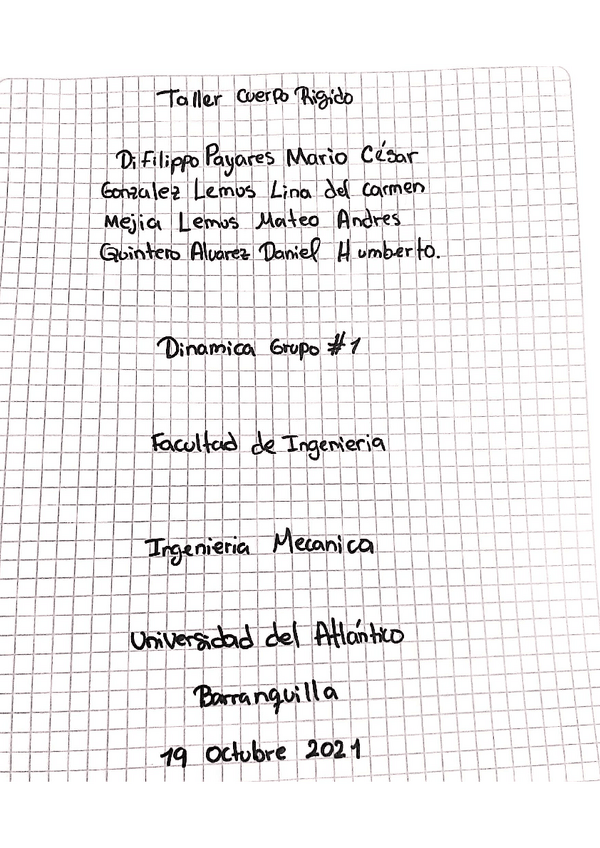 Taller Cuerpo Rigido
Di Filippo Payares Mario César
Gonzalez Lemus Lina del carmen
Mejia Lemus Mateo Andres
Quintero Alvarez Daniel Humberto.
Dinamica Grupo #1
Facultad de Ingenieria
Ingenieria Mecanica
Universidad del Atlántico
Barranquilla
19 Octubre 2021